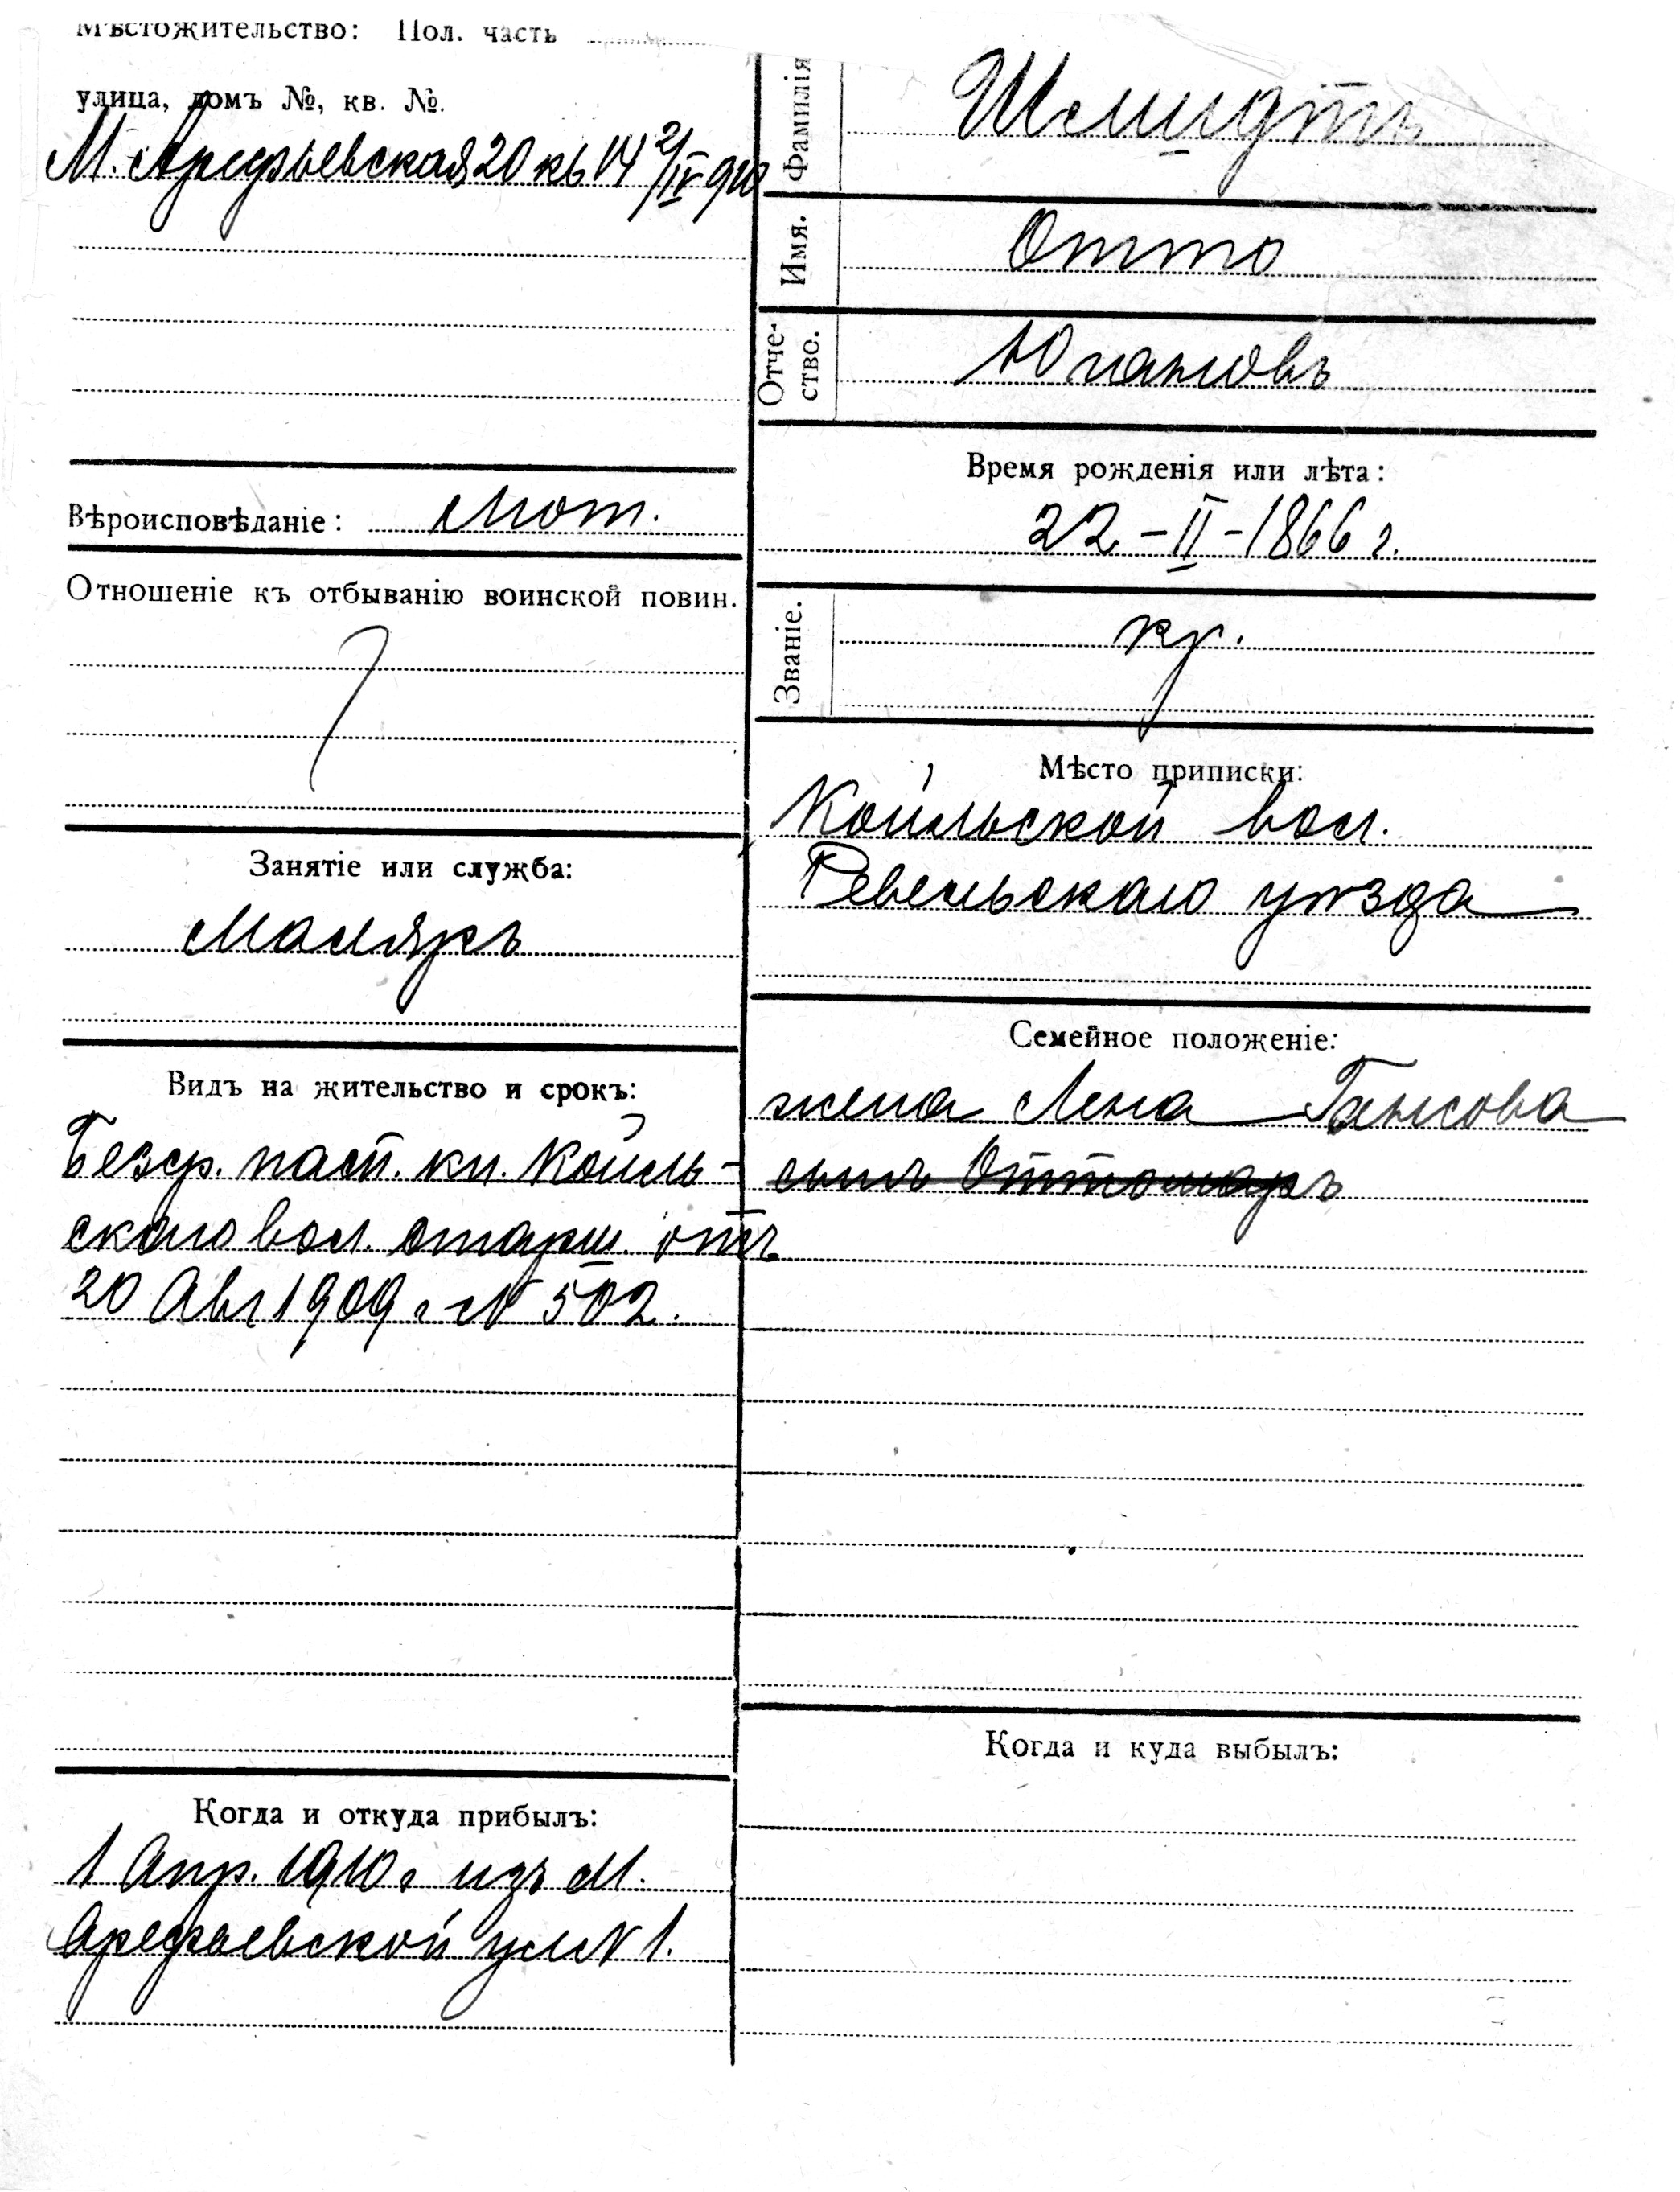 Мѣстожительство: Пол. часть
улица, домъ №, кв. №.
М. Арефьевская 20 кв 14 2/IV 910
Вѣроисповѣданіе: Лют.
Отношеніе къ отбыванію воинской повин.
Занятіе или служба:
Маляръ
Видъ на жительство и срокъ:
Безср. пасп. кн. Койль-
скаго вол. старш. отъ
20 Авг 1909 г № 502.
Когда и откуда прибылъ:
1 Апр. 1910 г изъ М.
Арефьевской ул № 1.
Фамилія
Шмидтъ
Имя.
Отто
Отче-
ство.
Югановъ
Время рожденія или лѣта:
22-II-1866 г.
Званіе.
кр.
Мѣсто приписки:
Койльской вол.
Ревельскаго уѣзда
Семейное положеніе:
жена Лена Гансова
сынъ Оттомаръ
Когда и куда выбылъ: